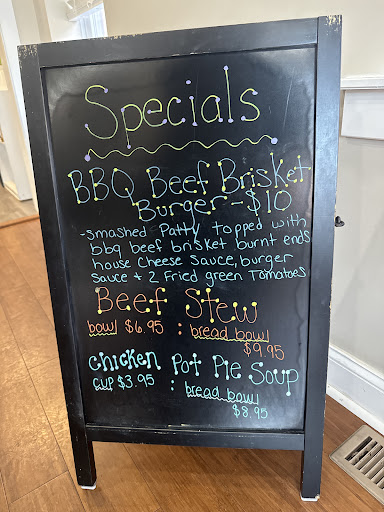 Specials
BBQ Beef Brisket
Burger - $10
- smashed Patty topped with
bbq beef brisket burnt ends
house cheese sauce, burger
sauce + 2 Fried green Tomatoes
Beef Stew
bowl $6.95 : bread bowl
$9.95
chicken Pot Pie Soup
cup $3.95 : bread bowl
$8.95